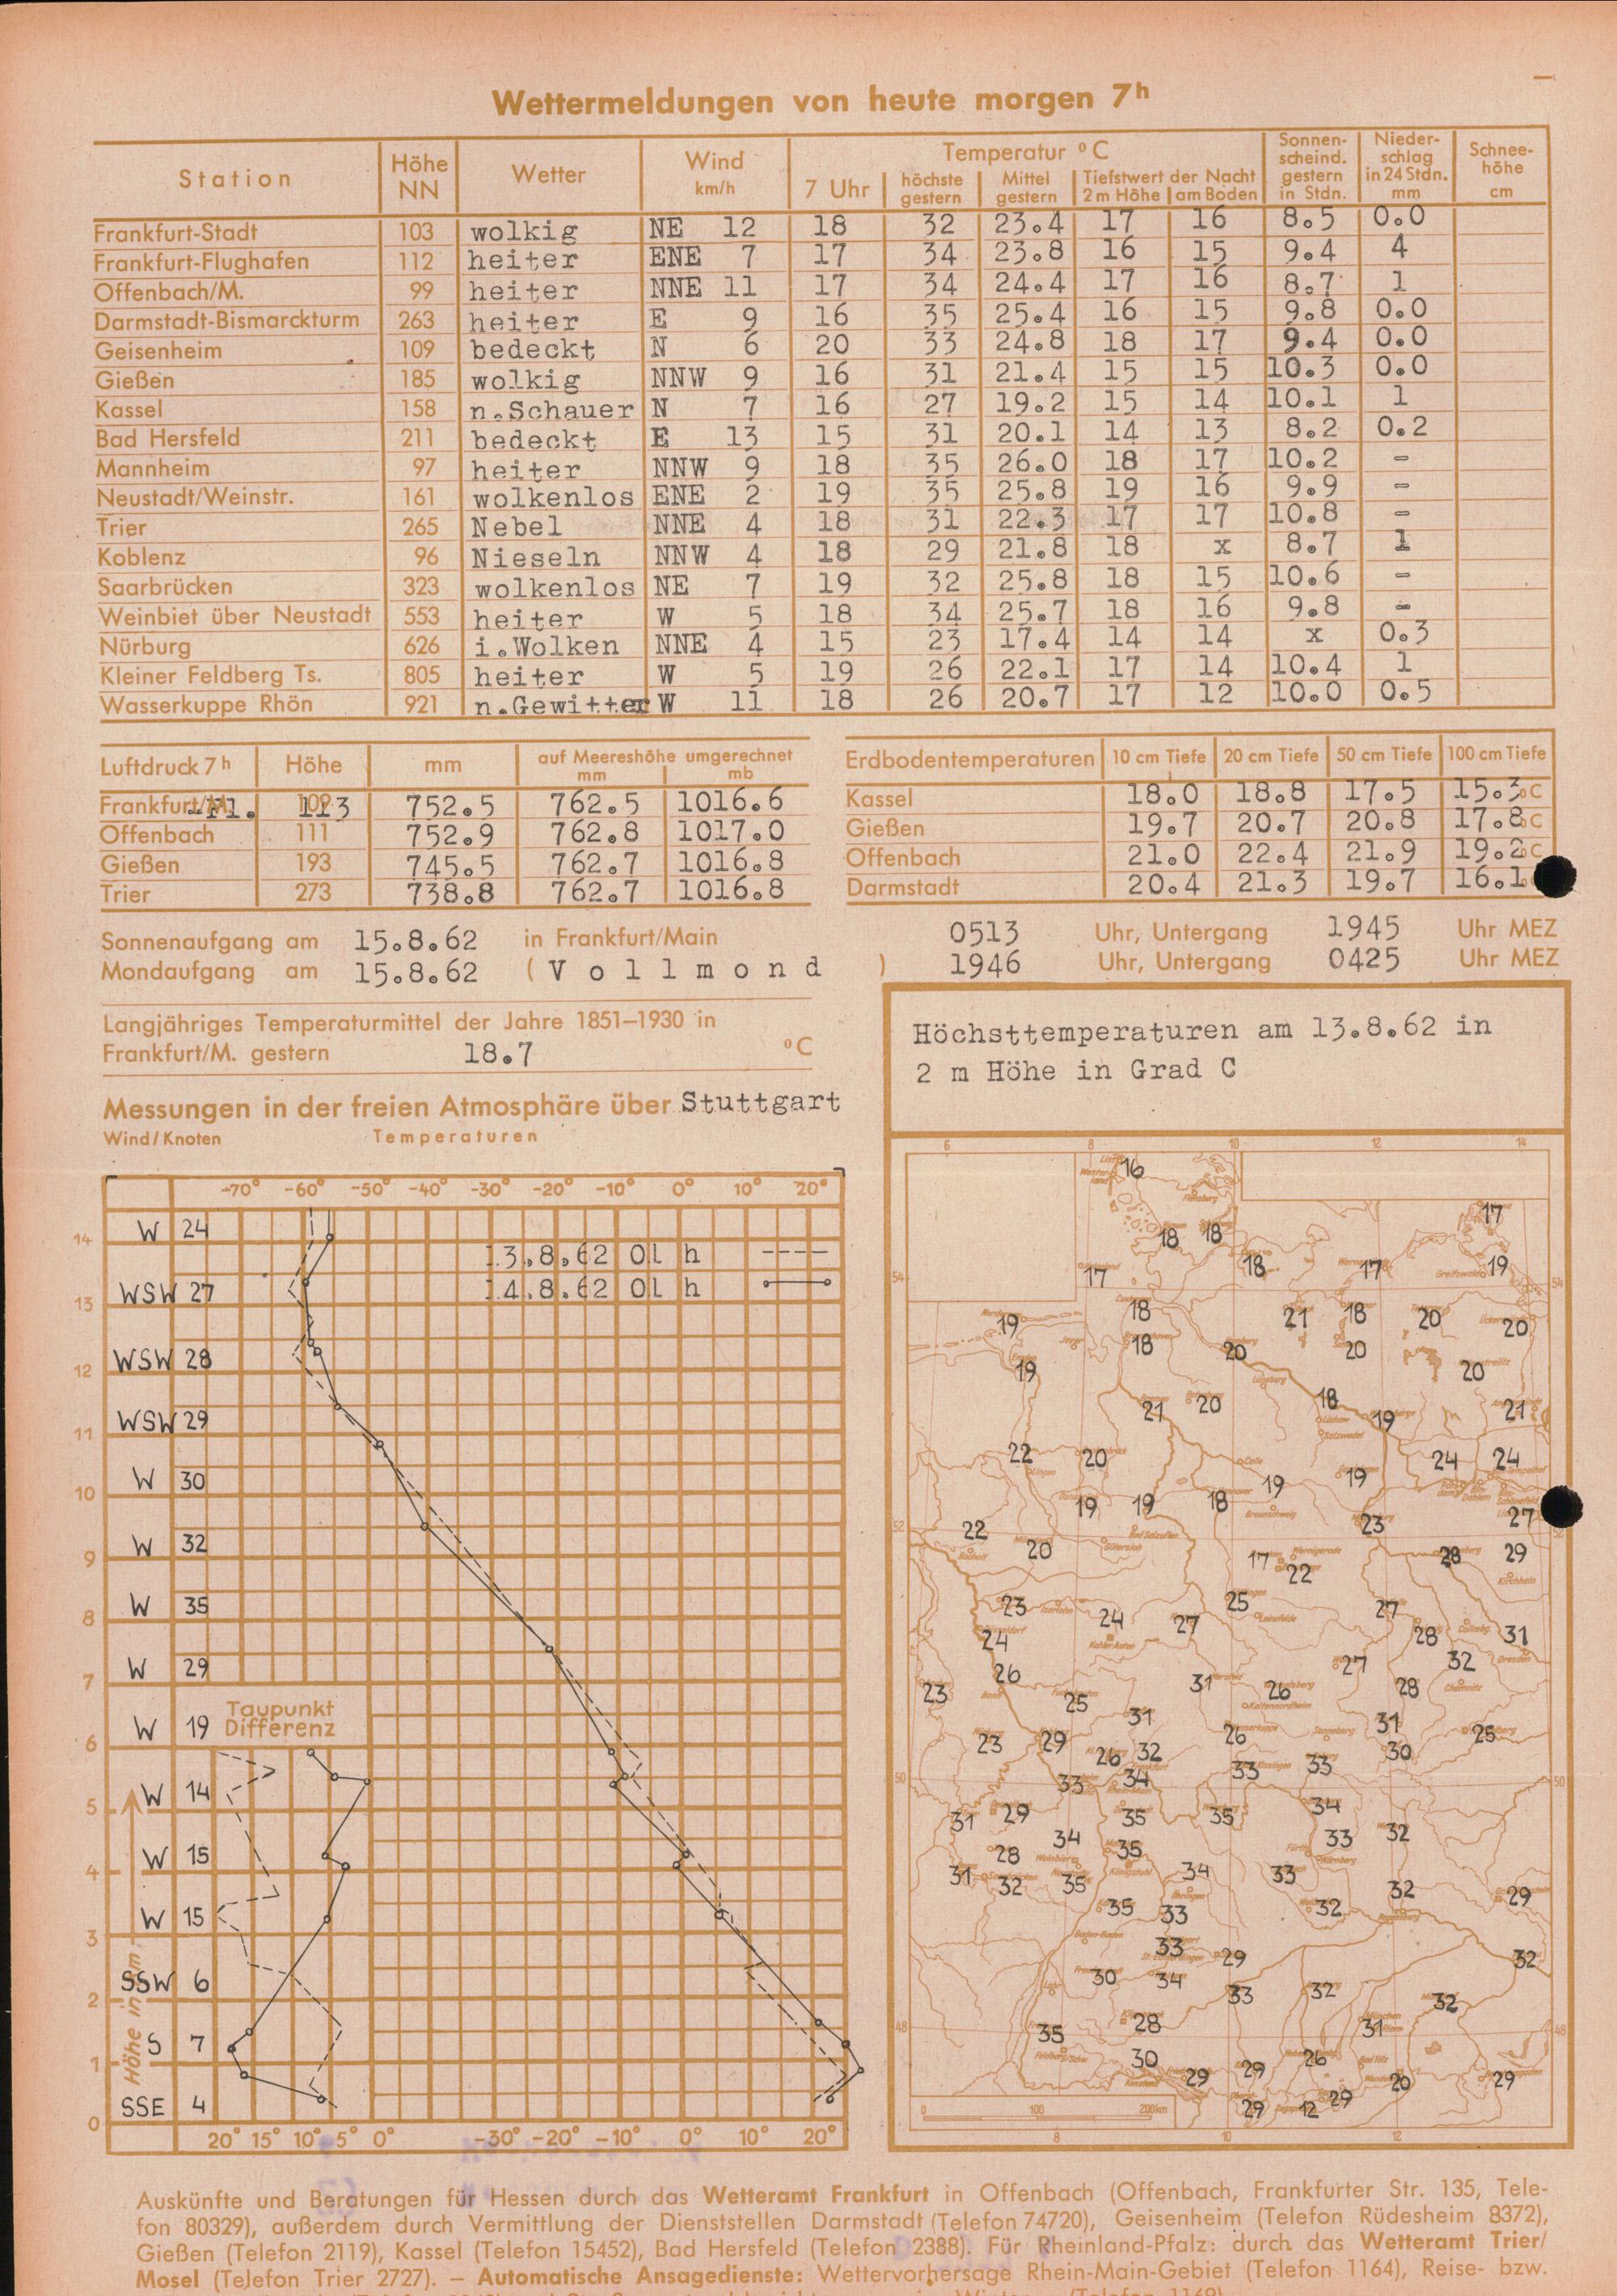 Wettermeldungen von heute morgen 7h
Station Höhe NN Wetter Wind km/h Temperatur °C Sonnenscheind. gestern in Stdn. Niederschlag in 24 Stdn. mm Schneehöhe cm
7 Uhr höchste gestern Mittel gestern Tiefstwert der Nacht 2 m Höhe am Boden
Frankfurt-Stadt 103 wolkig NE 12 18 32 23.4 17 16 8.5 0.0
Frankfurt-Flughafen 112 heiter ENE 7 17 34 23.8 16 15 9.4 4
Offenbach/M. 99 heiter NNE 11 17 34 24.4 17 16 8.7 1
Darmstadt-Bismarckturm 263 heiter E 9 16 35 25.4 16 15 9.8 0.0
Geisenheim 109 bedeckt N 6 20 33 24.8 18 17 9.4 0.0
Gießen 185 wolkig NNW 9 16 31 21.4 15 15 10.3 0.0
Kassel 158 n.Schauer N 7 16 27 19.2 15 14 10.1 1
Bad Hersfeld 211 bedeckt E 13 15 31 20.1 14 13 8.2 0.2
Mannheim 97 heiter NNW 9 18 35 26.0 18 17 10.2 -
Neustadt/Weinstr. 161 wolkenlos ENE 2 19 35 25.8 19 16 9.9 -
Trier 265 Nebel NNE 4 18 31 22.3 17 17 10.8 -
Koblenz 96 Nieseln NNW 4 18 29 21.8 18 x 8.7 1
Saarbrücken 323 wolkenlos NE 7 19 32 25.8 18 15 10.6 -
Weinbiet über Neustadt 553 heiter W 5 18 34 25.7 18 16 9.8 -
Nürburg 626 i.Wolken NNE 4 15 23 17.4 14 14 x 0.3
Kleiner Feldberg Ts. 805 heiter W 5 19 26 22.1 17 14 10.4 1
Wasserkuppe Rhön 921 n.Gewitter W 11 18 26 20.7 17 12 10.0 0.5
Luftdruck 7h Höhe mm auf Meereshöhe umgerechnet mm mb
Frankfurt/M. -Fl. 113 752.5 762.5 1016.6
Offenbach 111 752.9 762.8 1017.0
Gießen 193 745.5 762.7 1016.8
Trier 273 738.8 762.7 1016.8
Erdbodentemperaturen 10 cm Tiefe 20 cm Tiefe 50 cm Tiefe 100 cm Tiefe
Kassel 18.0 18.8 17.5 15.3 °C
Gießen 19.7 20.7 20.8 17.8 °C
Offenbach 21.0 22.4 21.9 19.2 °C
Darmstadt 20.4 21.3 19.7 16.1
Sonnenaufgang am 15.8.62 in Frankfurt/Main 0513 Uhr, Untergang 1945 Uhr MEZ
Mondaufgang am 15.8.62 ( Vollmond ) 1946 Uhr, Untergang 0425 Uhr MEZ
Langjähriges Temperaturmittel der Jahre 1851–1930 in
Frankfurt/M. gestern 18.7 °C
Messungen in der freien Atmosphäre über Stuttgart
Wind/Knoten Temperaturen
-70° -60° -50° -40° -30° -20° -10° 0° 10° 20°
14 W 24
13.8.62 01 h
14.8.62 01 h
13 WSW 27
12 WSW 28
WSW 29
11
10 W 30
9 W 32
8 W 35
7 W 29
Taupunkt
Differenz
6 W 19
5 W 14
4 W 15
3 W 15
2 SSW 6
1 S 7
0 SSE 4
Höhe in km
20° 15° 10° 5° 0° -30° -20° -10° 0° 10° 20°
Höchsttemperaturen am 13.8.62 in
2 m Höhe in Grad C
6 8 10 12 14
16
17
18 18
17 18 17 19
54 54
19 18 21 18 20 20
18 20 20
19 20
21 20 18 19 21
22 20 24 24
19 19
19 19 18 27
22 23
52
20 17 22 28 29
23 24 25 27
24 27 28 31
26 31 27 32
23 25 26 28
31 31
23 29 26 32 26 30 25
33 34 33 33
50 50
31 29 35 35 34
34 33 32
28 35
31 32 35 34 33 32 29
35 33 32
33 29 32
30 34 33 32 32
48 48
35 28 31
30 29 29 26 20 29
29 12 29
0 100 200km
8 10 12
Auskünfte und Beratungen für Hessen durch das Wetteramt Frankfurt in Offenbach (Offenbach, Frankfurter Str. 135, Tele-
fon 80329), außerdem durch Vermittlung der Dienststellen Darmstadt (Telefon 74720), Geisenheim (Telefon Rüdesheim 8372),
Gießen (Telefon 2119), Kassel (Telefon 15452), Bad Hersfeld (Telefon 2388). Für Rheinland-Pfalz: durch das Wetteramt Trier/
Mosel (Telefon Trier 2727). — Automatische Ansagedienste: Wettervorhersage Rhein-Main-Gebiet (Telefon 1164), Reise- bzw.